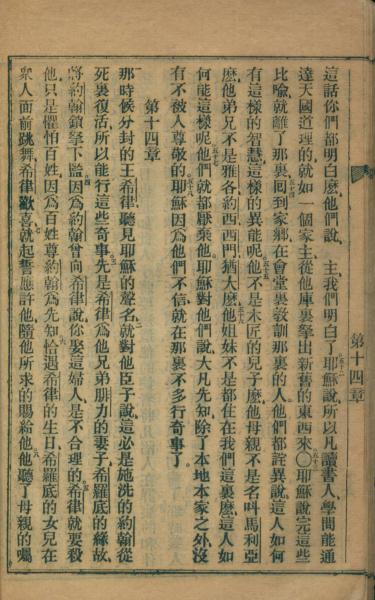 這話你們都明白麽他們說、主我們明白了耶穌說所以凡讀書人、學問能通
達天國道理的就如一個家主從他庫裏拏出新舊的東西來〇耶穌說完這些
比喻就離了那裏回到家鄉在會堂裏教訓那裏的人他們都詫異說這人如何
有這樣的智慧這樣的異能呢他不是木匠的兒子麽他母親不是名呌馬利亞
麽他弟兄不是雅各約西西門猶大麽他姐妹不是都住在我們這裏麽這人如
何能這樣呢他們就都厭棄他耶穌對他們說大凡先知除了本地本家之外沒
有不被人尊敬的耶穌因爲他們不信就在那裏不多行奇事了。
第十四章
那時候分封的王希律聽見耶穌的聲名就對他臣子說這必是施洗的約翰從
死裏復活所以能行這些奇事先是希律爲他兄弟腓力的妻子希羅底的緣故
將約翰鎖拏下監因爲約翰曾向希律說你娶這婦人是不合理的希律就要殺
他只是懼怕百姓因爲百姓尊約翰爲先知恰遇希律的生日希羅底的女兒在
眾人面前跳舞希律歡喜就起誓應許他隨他所求的賜給他他聽了母親的囑
第十四章